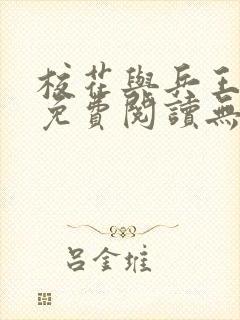 校花與兵王
免費閱讀無
呂金堆